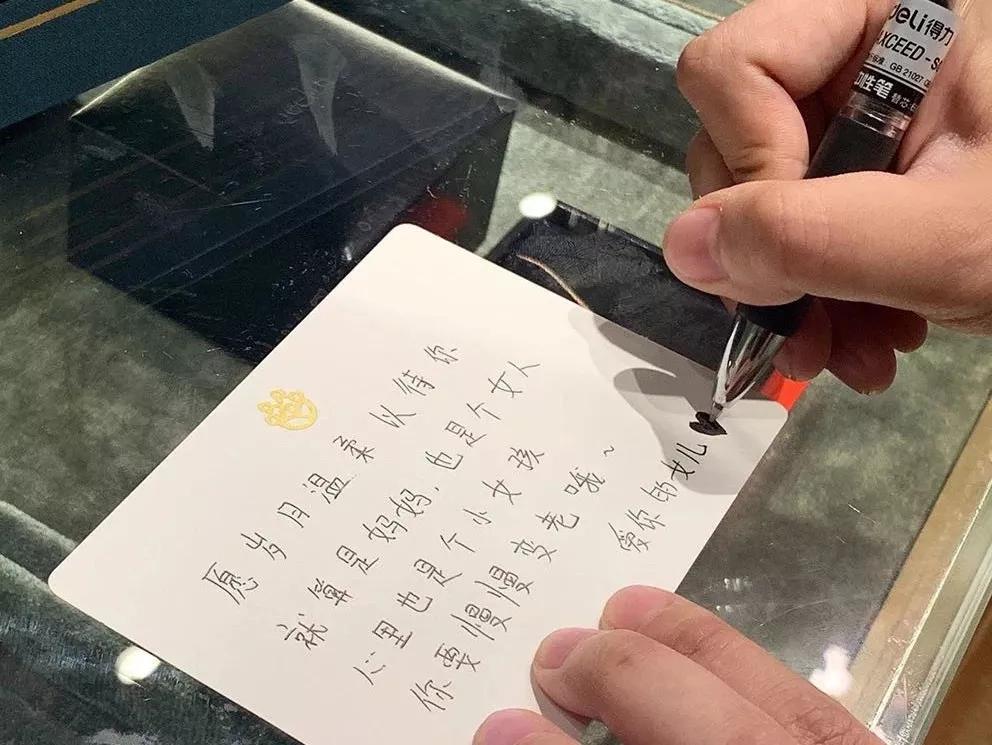 愿岁月温柔以待你
就算是妈妈,也是个女人
心里也是个小女孩
你要慢慢变老哦~
爱你的女儿
deli得力
XCEED-S
GB 21027
中性笔 替芯